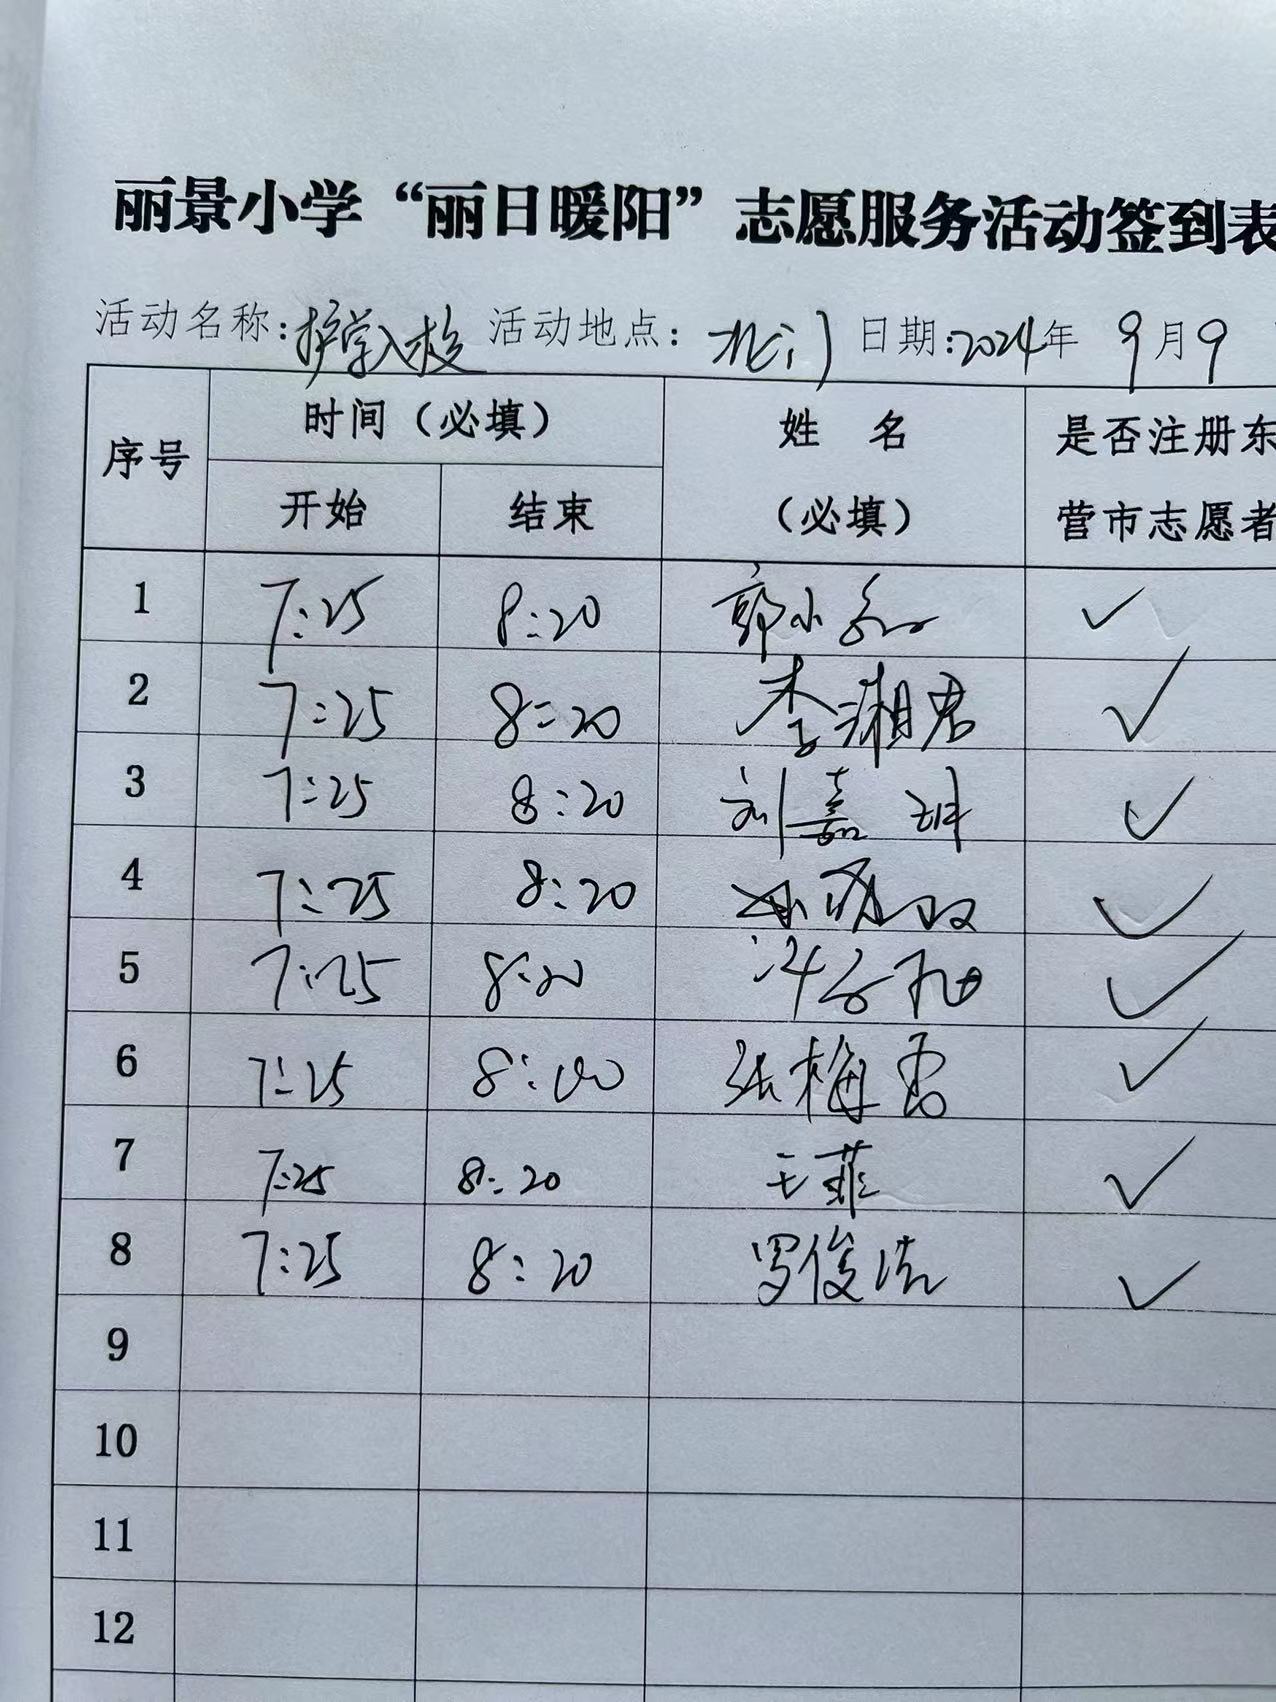 丽景小学“丽日暖阳”志愿服务活动签到表
活动名称:护学入校 活动地点：北门 日期:2024年 9月9
序号 时间（必填） 姓 名（必填） 是否注册东营市志愿者
开始 结束
1 7:25 8:20 郭小 ✓
2 7:25 8:20 李湘君 ✓
3 7:25 8:20 刘嘉琪 ✓
4 7:25 8:20 ✓
5 7:25 8:20 ✓
6 7:25 8:20 张梅雪 ✓
7 7:25 8:20 王菲 ✓
8 7:25 8:20 罗俊浩 ✓
9
10
11
12